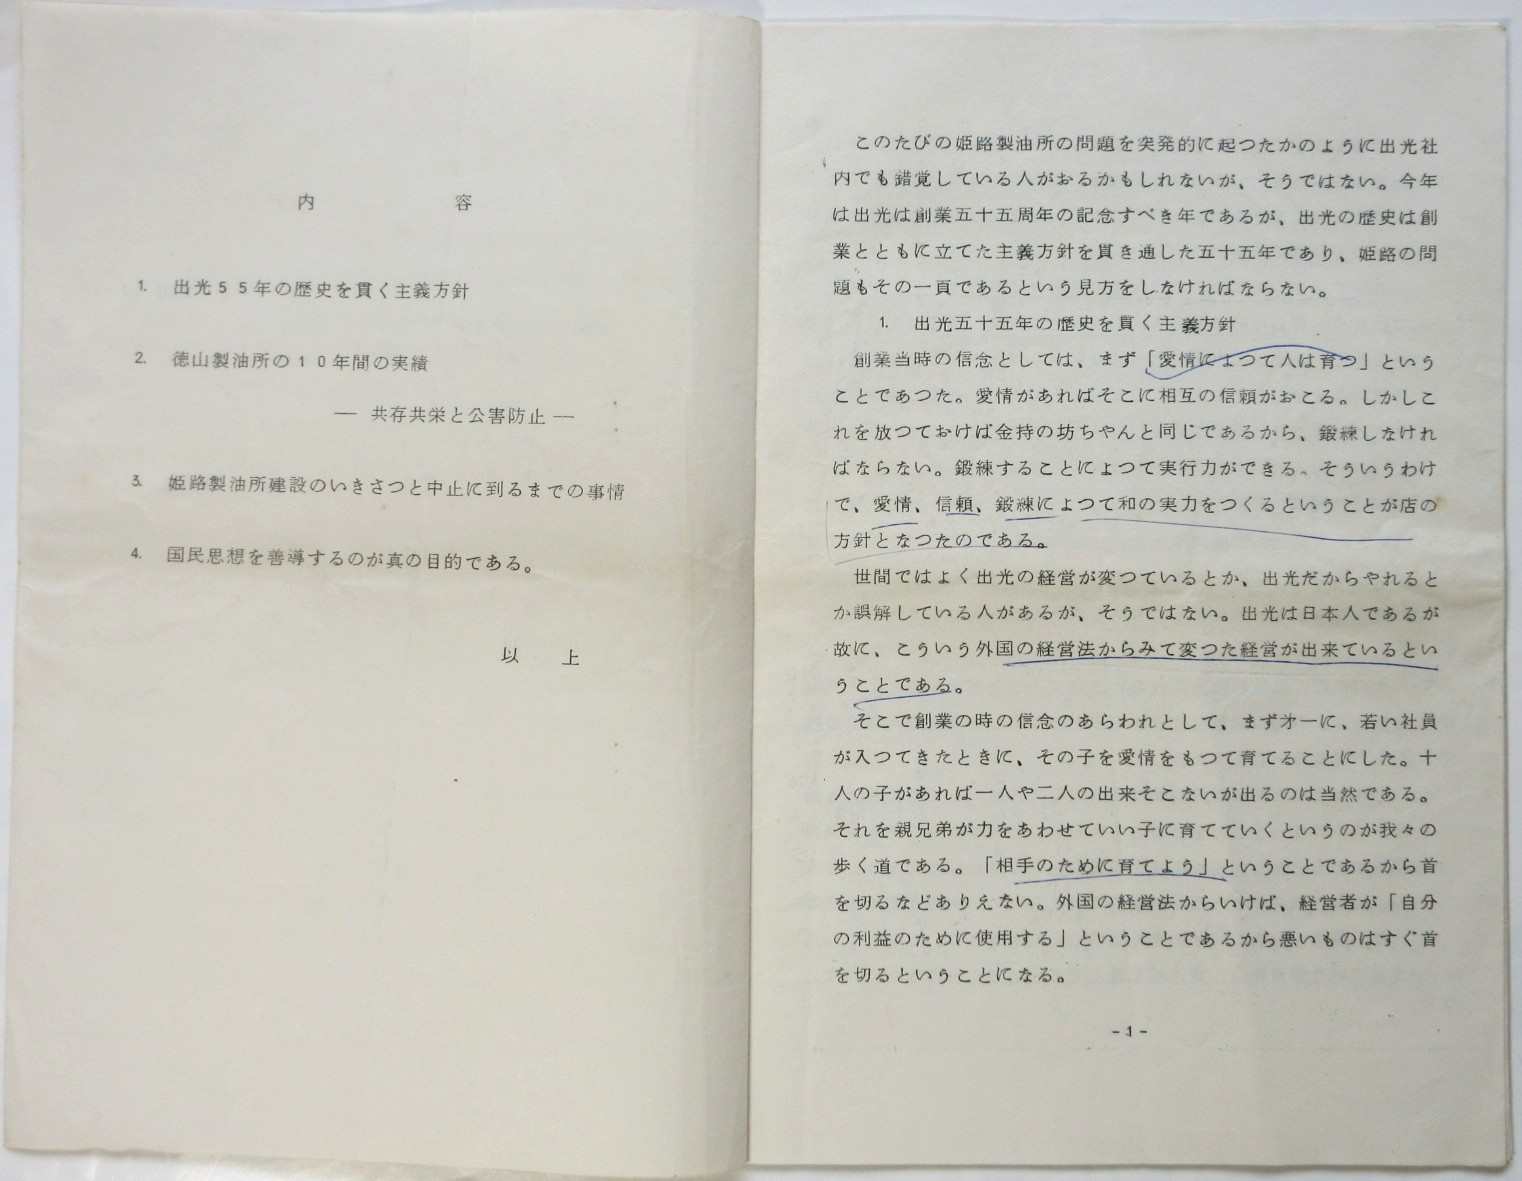 内　容
1. 出光55年の歴史を貫く主義方針
2. 徳山製油所の10年間の実績
― 共存共栄と公害防止 ―
3. 姫路製油所建設のいきさつと中止に到るまでの事情
4. 国民思想を善導するのが真の目的である。
以　上
このたびの姫路製油所の問題を突発的に起つたかのように出光社
内でも錯覚している人がおるかもしれないが、そうではない。今年
は出光は創業五十五周年の記念すべき年であるが、出光の歴史は創
業とともに立てた主義方針を貫き通した五十五年であり、姫路の問
題もその一頁であるという見方をしなければならない。
1. 出光五十五年の歴史を貫く主義方針
創業当時の信念としては、まず「愛情によつて人は育つ」という
ことであつた。愛情があればそこに相互の信頼がおこる。しかしこ
れを放つておけば金持の坊ちやんと同じであるから、鍛練しなけれ
ばならない。鍛練することによつて実行力ができる。そういうわけ
で、愛情、信頼、鍛練によつて和の実力をつくるということが店の
方針となつたのである。
世間ではよく出光の経営が変つているとか、出光だからやれると
か誤解している人があるが、そうではない。出光は日本人であるが
故に、こういう外国の経営法からみて変つた経営が出来ているとい
うことである。
そこで創業の時の信念のあらわれとして、まずオ一に、若い社員
が入つてきたときに、その子を愛情をもつて育てることにした。十
人の子があれば一人や二人の出来そこないが出るのは当然である。
それを親兄弟が力をあわせていい子に育てていくというのが我々の
歩く道である。「相手のために育てよう」ということであるから首
を切るなどありえない。外国の経営法からいけば、経営者が「自分
の利益のために使用する」ということであるから悪いものはすぐ首
を切るということになる。
-1-